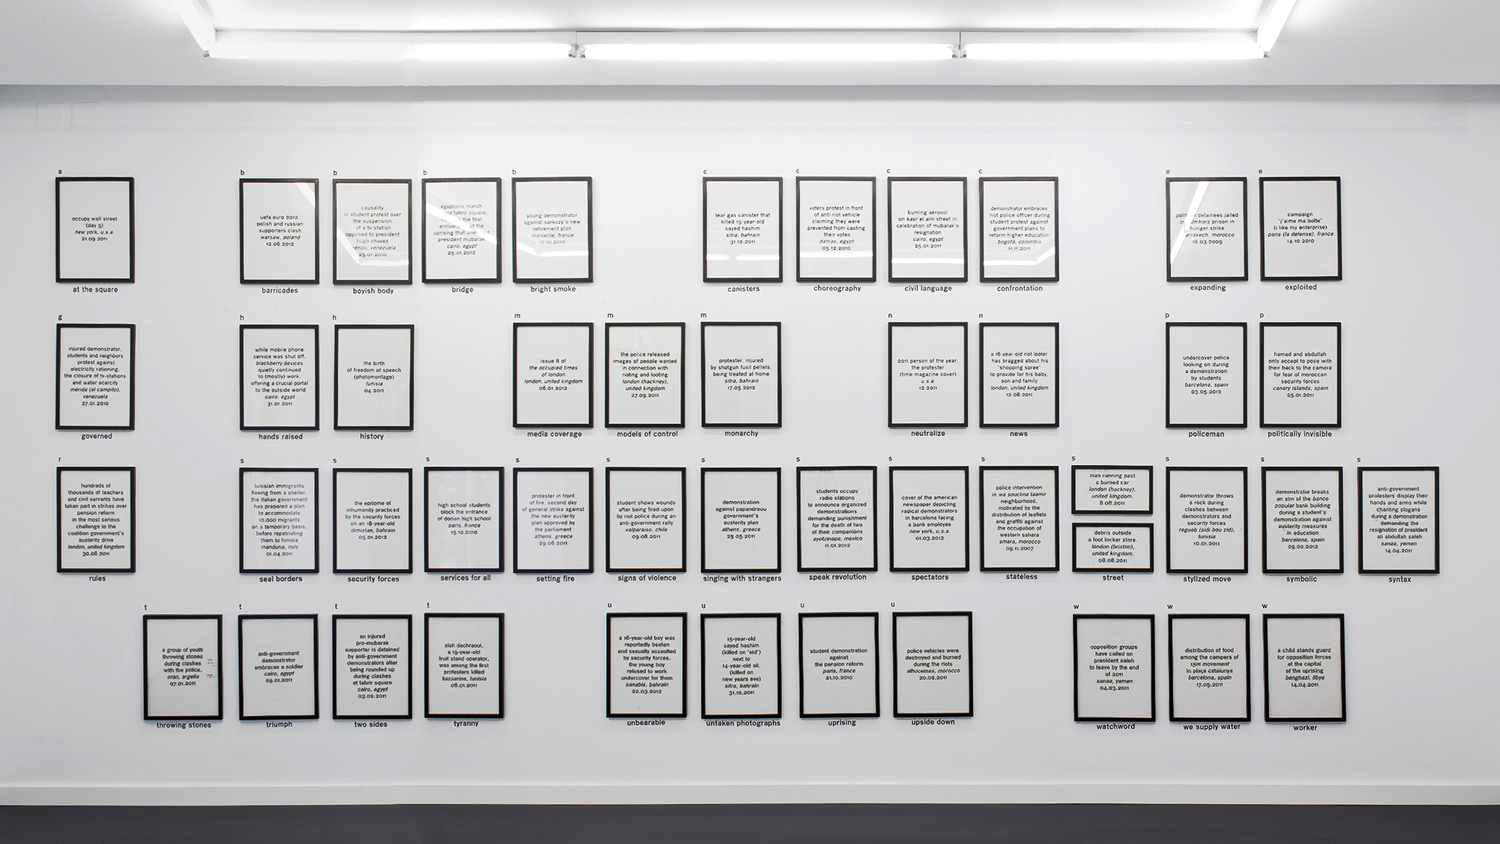 a
occupy wall street
(day 5)
new york, u.s.a.
21.09.2011
at the square
b
uefa euro 2012.
polish and russian
supporters clash
warsaw, poland
12.06.2012
barricades
b
causality
in student protest over
the suspension
of a tv-station
opposed to president
hugo chavez
venezuela
25.01.2010
boyish body
b
egyptians march
tahrir square,
the first
anniversary of the
uprising that
president mubarak
cairo, egypt
25.01.2012
bridge
b
young demonstrator
against sarkozy's new
retirement plan
marseille, france
bright smoke
c
tear gas canister that
killed 15-year-old
sayed hashim
sitra, bahrain
31.12.2011
canisters
c
voters protest in front
of anti-riot vehicle
claiming they were
prevented from casting
their votes
damas, egypt
05.12.2010
choreography
c
burning aerosol
on kasr el aini street in
celebration of mubarak's
resignation
cairo, egypt
25.01.2011
civil language
c
demonstrator embraces
riot police officer during
student protest against
government plans to
reform higher education
bogota, colombia
11.11.2011
confrontation
e
detainees jailed
prison in
hunger strike
morocco
16.03.2009
expanding
e
campaign
'j'aime ma boîte'
(i like my enterprise)
paris (la défense), france
14.10.2010
exploited
g
injured demonstrator,
students and neighbors
protest against
electricity rationing,
the closure of tv-stations
and water scarcity
mérida (el campito),
venezuela
27.01.2010
governed
h
while mobile phone
service was shut off,
blackberry devices
quietly continued
to (mostly) work,
offering a crucial portal
to the outside world
cairo, egypt
31.01.2011
hands raised
h
the birth
of freedom of speech
(photomontage)
tunisia
04.2011
history
m
issue 8 of
the occupied times
of london
london, united kingdom
06.01.2012
media coverage
m
the police released
images of people wanted
in connection with
rioting and looting
london (hackney),
united kingdom
27.09.2011
models of control
m
protester, injured
by shotgun fusil pellets,
being treated at home
sitra, bahrain
17.05.2012
monarchy
n
2011 person of the year:
the protester
(time magazine cover)
u.s.a.
12.2011
neutralize
n
a 16-year-old riot looter
has bragged about his
'shopping spree'
to provide for his baby,
son and family
london, united kingdom
12.08.2011
news
p
undercover police
looking on during
a demonstration
by students
barcelona, spain
03.05.2012
policeman
p
hamad and abdullah
only accept to pose with
their back to the camera
for fear of moroccan
security forces
canary islands, spain
25.01.2011
politically invisible
r
hundreds of
thousands of teachers
and civil servants have
taken part in strikes over
pension reform
in the most serious
challenge to the
coalition government's
austerity drive
london, united kingdom
30.06.2011
rules
s
tunisian immigrants
fleeing from a shelter.
the italian government
has prepared a plan
to accommodate
10.000 migrants
on a temporary basis,
before repatriating
them to tunisia
manduria, italy
01.04.2011
seal borders
s
the epitome of
inhumanity practiced
by the security forces
on an 18-year-old
dimistan, bahrain
05.01.2012
security forces
s
high school students
block the entrance
of dorian high school
paris, france
15.10.2010
services for all
s
protester in front
of fire, second day
of general strike against
the new austerity
plan approved by
the parliament
athens, greece
29.06.2011
setting fire
s
student shows wounds
after being fired upon
by riot police during an
anti-government rally
valparaiso, chile
09.08.2011
signs of violence
s
demonstration
against papandreou
government's
austerity plan
athens, greece
29.05.2011
singing with strangers
s
students occupy
radio stations
to announce organized
demonstrations
demanding punishment
for the death of two
of their companions
ayotzinapa, mexico
11.01.2012
speak revolution
s
cover of the american
newspaper depicting
radical demonstrators
in barcelona facing
a bank employee
new york, u.s.a.
01.03.2012
spectators
s
police intervention
in wa souckna taamr
neighborhood,
motivated by the
distribution of leaflets
and graffiti against
the occupation of
western sahara
smara, morocco
09.11.2007
stateless
s
man running past
a burned car
london (hackney),
united kingdom.
8.08.2011
debris outside
a foot locker store.
london (brixton),
united kingdom.
08.08.2011
street
s
demonstrator throws
a rock during
clashes between
demonstrators and
security forces
regueb (sidi bou zid),
tunisia
10.01.2011
stylized move
s
demonstrator breaks
an atm of the banco
popular bank building
during a student's
demonstration against
austerity measures
in education
barcelona, spain
29.02.2012
symbolic
s
anti-government
protesters display their
hands and arms while
chanting slogans
during a demonstration
demanding the
resignation of president
ali abdullah saleh
sanaa, yemen
14.04.2011
syntax
t
a group of youth
throwing stones
during clashes
with the police.
oran, argelia
07.01.2011
throwing stones
t
anti-government
demonstrator
embraces a soldier
cairo, egypt
29.01.2011
triumph
t
an injured
pro-mubarak
supporter is detained
by anti-government
demonstrators after
being rounded up
during clashes
at tahrir square
cairo, egypt
03.02.2011
two sides
t
slah dachraoui,
a 19-year-old
fruit stand operator,
was among the first
protesters killed
kasserine, tunisia
08.01.2011
tyranny
u
a 16-year-old boy was
reportedly beaten
and sexually assaulted
by security forces.
the young boy
refused to work
undercover for them
sanabis, bahrain
22.03.2012
unbearable
u
15-year-old
sayed hashim
(killed on 'eid')
next to
14-year-old ali,
(killed on
new years eve)
sitra, bahrain
31.12.2011
untaken photographs
u
student demonstration
against
the pension reform
paris, france
21.10.2010
uprising
u
police vehicles were
destroyed and burned
during the riots
alhucemas, morocco
20.02.2011
upside down
w
opposition groups
have called on
president saleh
to leave by the end
of 2011
sanaa, yemen
04.03.2011
watchword
w
distribution of food
among the campers of
15m movement
in plaça catalunya
barcelona, spain
17.05.2011
we supply water
w
a child stands guard
for opposition forces
at the capital
of the uprising
benghazi, libya
14.04.2011
worker